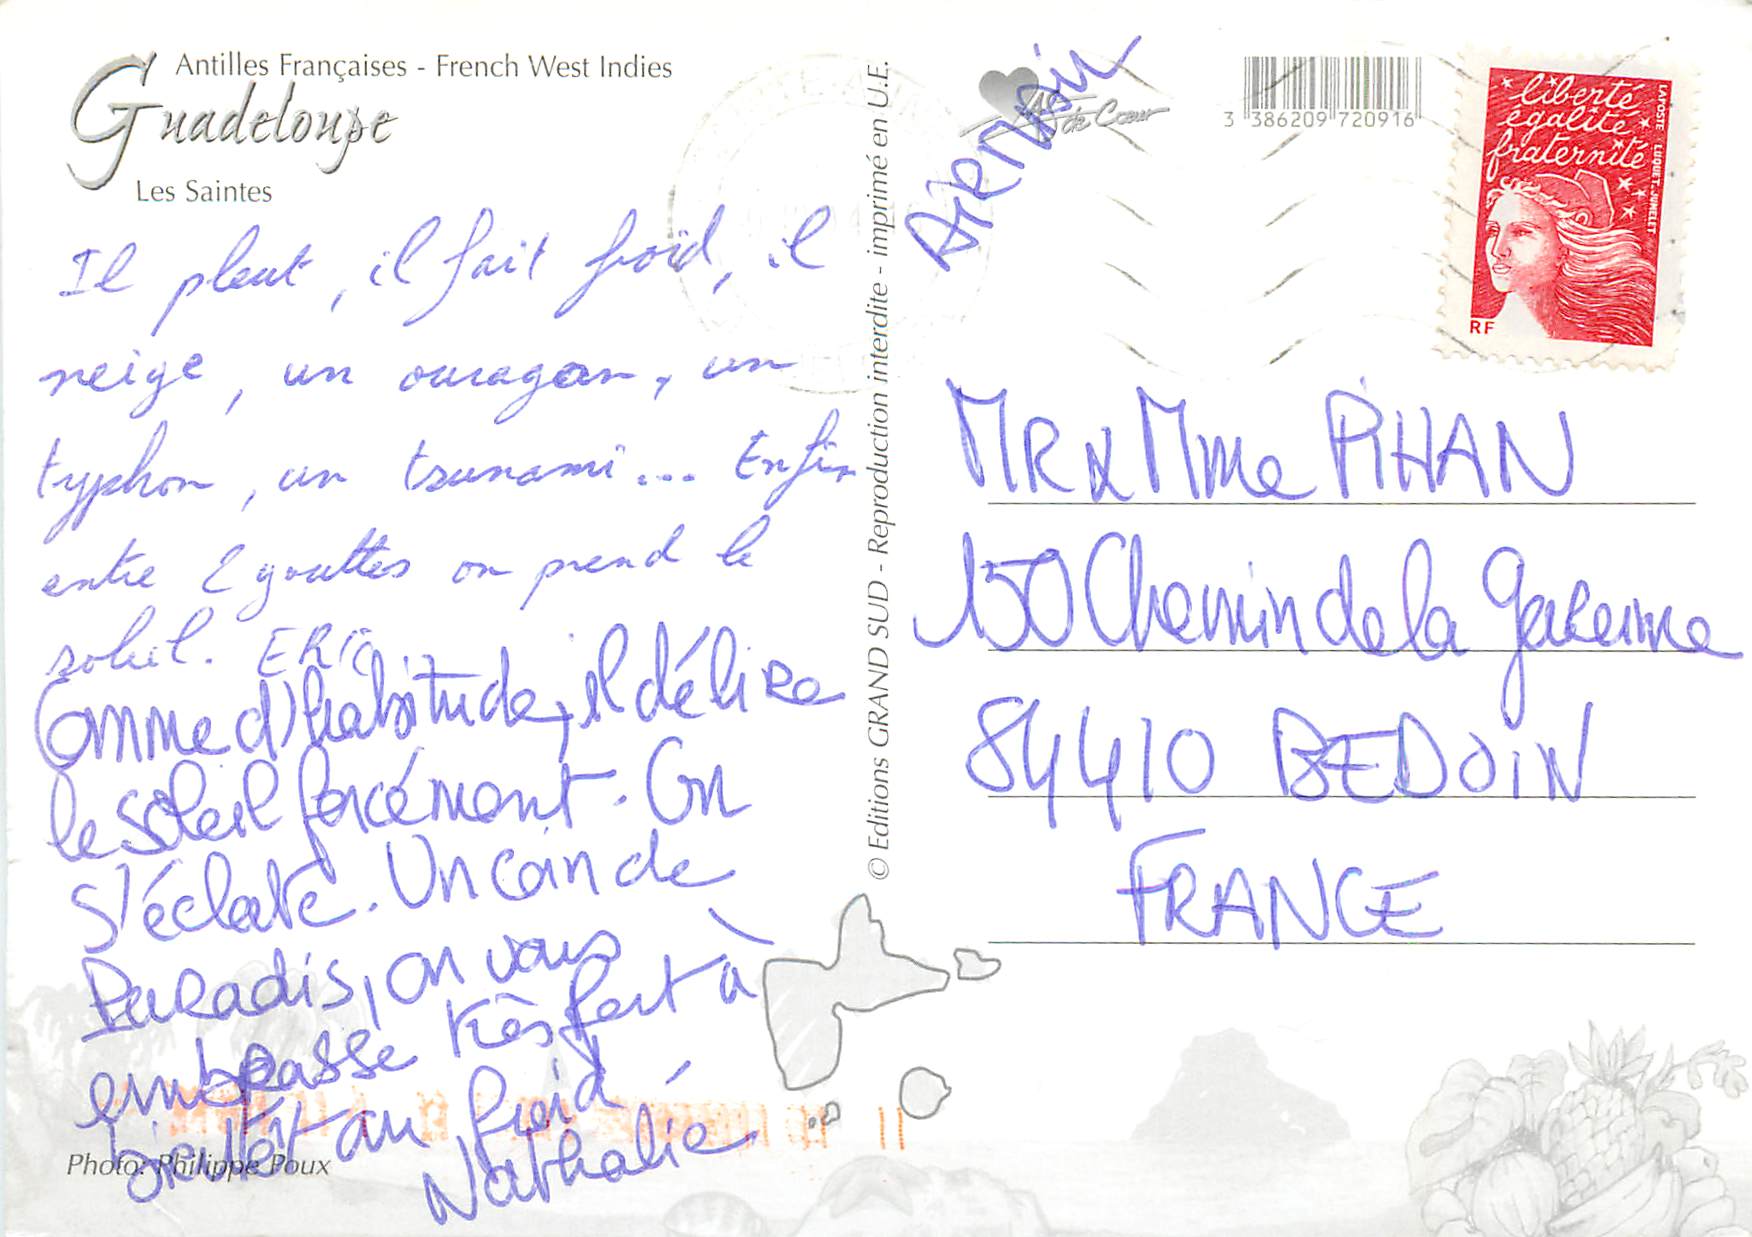 Antilles Françaises - French West Indies
Guadeloupe
Les Saintes
Il pleut, il fait froid, il
neige, un ouragan, un
typhon, un tsunami... Enfin
entre 2 gouttes on prend le
soleil. ERIC
Comme d'habitude, il délire
le soleil forcément. On
s'éclate. Un coin de
Paradis, on vous
embrasse très fort à
bientôt au froid
Nathalie
Photo: Philippe Poux
© Editions GRAND SUD - Reproduction interdite - imprimé en U.E.
As de Cœur
3 386209 720916
liberté
égalité
fraternité
LA POSTE LUQUET-JUMELET
RF
MR & Mme PIHAN
150 Chemin de la garenne
84410 BEDOIN
FRANCE